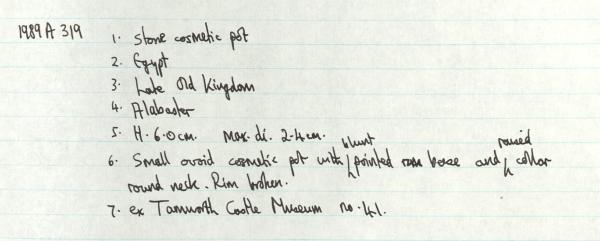 1989 A 319
1. Stone cosmetic pot
2. Egypt
3. Late Old Kingdom
4. Alabaster
5. H. 6.0cm. Max. di. 2.4cm.
6. Small ovoid cosmetic pot with blunt pointed base and raised collar
round neck. Rim broken.
7. ex Tamworth Castle Museum no. 41.